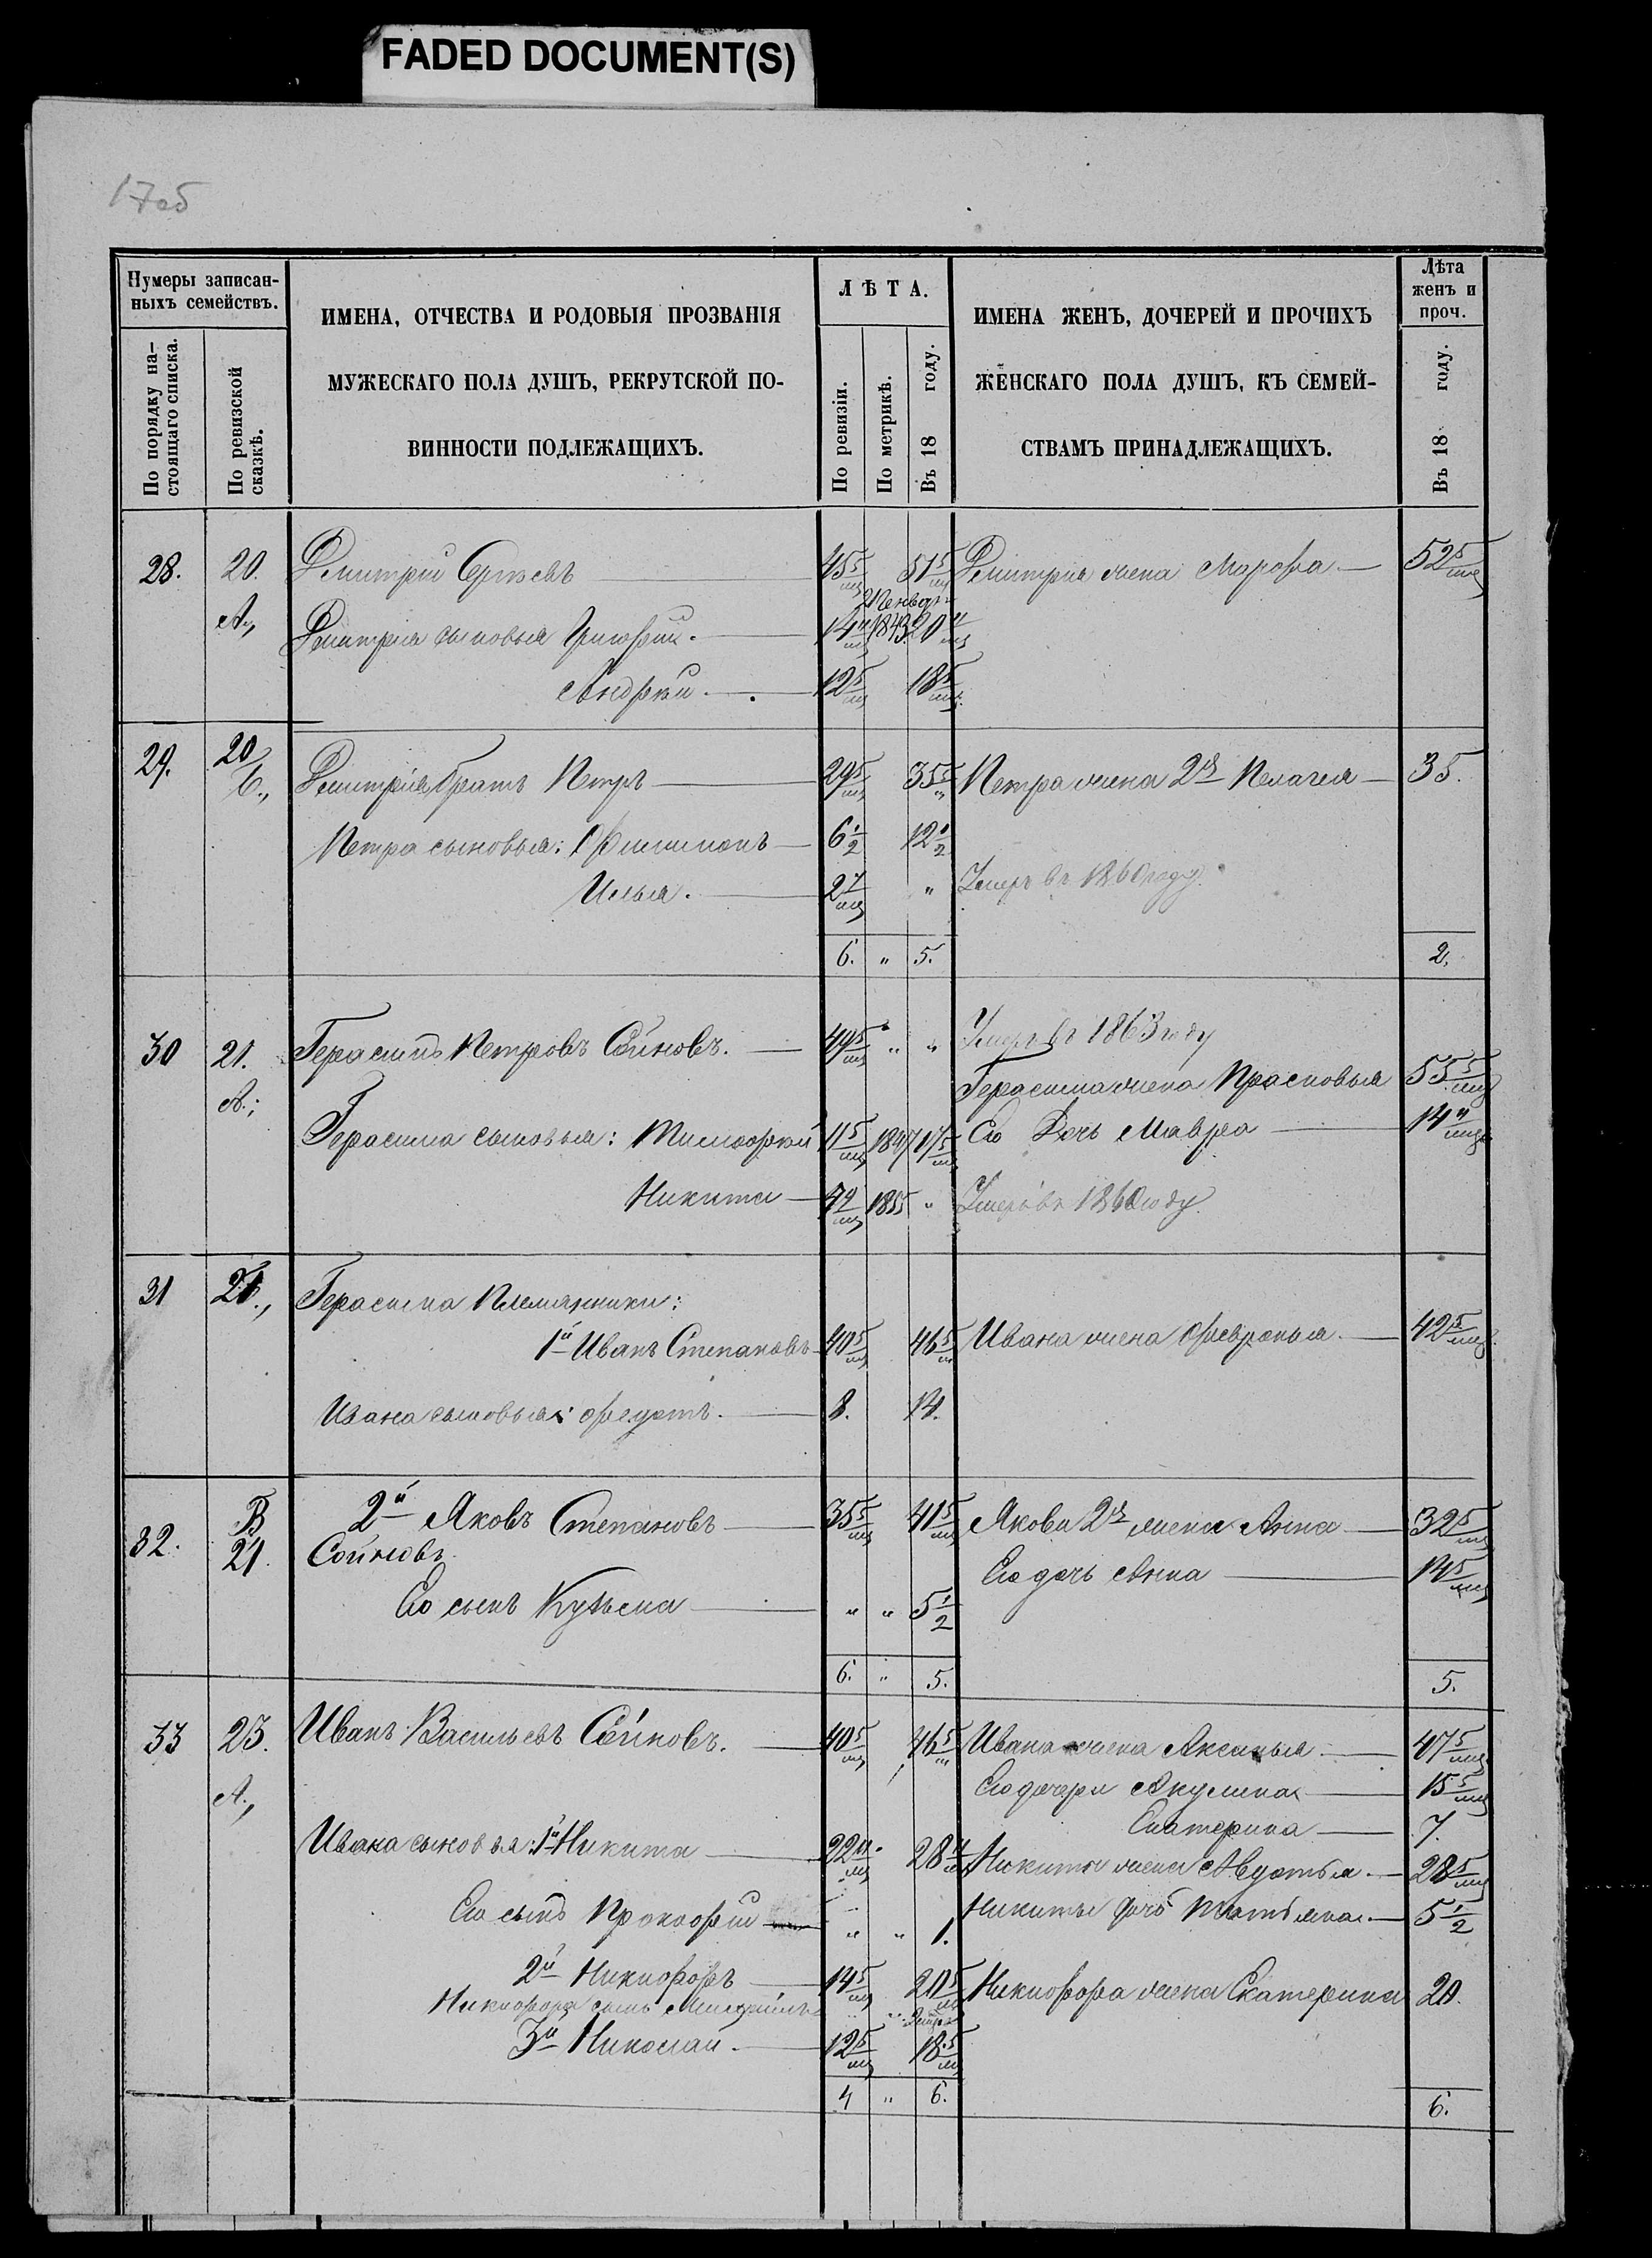 FADED DOCUMENT(S)
17об
Нумеры записан-
ныхъ семействъ.
По порядку на-
стоящаго списка.
По ревизской
сказкѣ.
ИМЕНА, ОТЧЕСТВА И РОДОВЫЯ ПРОЗВАНІЯ
МУЖЕСКАГО ПОЛА ДУШЪ, РЕКРУТСКОЙ ПО-
ВИННОСТИ ПОДЛЕЖАЩИХЪ.
ЛѢТА.
По ревизіи.
По метрикѣ.
Въ 18 году.
ИМЕНА ЖЕНЪ, ДОЧЕРЕЙ И ПРОЧИХЪ
ЖЕНСКАГО ПОЛА ДУШЪ, КЪ СЕМЕЙ-
СТВАМЪ ПРИНАДЛЕЖАЩИХЪ.
Лѣта
женъ и
проч.
Въ 18 году.
28. 20. Дмитрій Сергѣевъ 45 5/мц 51 5/мц Дмитрія жена Марфа 52 5/мц
А., Дмитрія сыновья Григорій. 14 11/мц 1843 20 11/мц
Андрей. 12 5/мц 18 5/мц
29. 20 Б., Дмитрія братъ Петръ 29 5/мц 35 5/" Петра жена 2я Пелагея 35.
Петра сыновья: Филимонъ 6 1/2 12 1/2
Илья. 2 7/мц " Умеръ въ 1860 году.
6. " 5. 2.
30 21. Герасимъ Петровъ Сойновъ. 49 5/мц " " Умеръ въ 1863 году
Герасима жена Прасковья 55 5/мц
А.; Герасима сыновья: Тимофей 11 5/мц 1847 17 5/мц Его Дочь Мавра 14 11/мц
Никита 7 9/мц 1855 " Умеръ въ 1860 году.
31 21., Герасима Племянники:
1й Иванъ Степановъ 40 5/мц 46 5/мц Ивана жена Февронья 42 5/мц
Ивана сыновья: Федотъ. 8. 14.
32. В 21. 2й Яковъ Степановъ 35 5/мц 41 5/мц Якова 2я жена Анна 32 5/мц
Сойновъ
Его дочь Анна 14 5/мц
Его сынъ Кузьма " " 5 1/2
6. " 5. 5.
33 23. Иванъ Васильевъ Сойновъ. 40 5/мц 46 5/мц Ивана жена Аксинья 47 5/мц
А., Его дочери Акулина 15 5/мц
Екатерина 7.
Ивана сыновья: 1й Никита 22 11/мц 28 11/мц Никиты жена Авдотья 28 5/мц
Его сынъ Прокофій " " 1. Никиты дочь Татьяна 5 1/2
2й Никифоръ 14 5/мц 20 5/мц Никифора жена Екатерина 20.
Никифора сынъ
3й Николай. 12 5/мц 18 5/мц
4 " 6. 6.